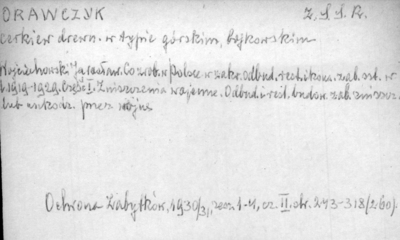 ORAWCZYK Z.S.S.R.
cerkiew drewn. w typie górskim, bojkowskim
Wojciechowski Jarosław. Co zrob. w Polsce w zakr. odbud. rest. i kons. zab. szt. w
l. 1919-1929. Część I. Zniszczenia wojenne. Odbud. i rest. budow. zab. zniszcz.
lub uszkodz. przez wojnę
Ochrona Zabytków, 1930/31, zesz. 1-4, cz. II. str. 243-318 (/260).